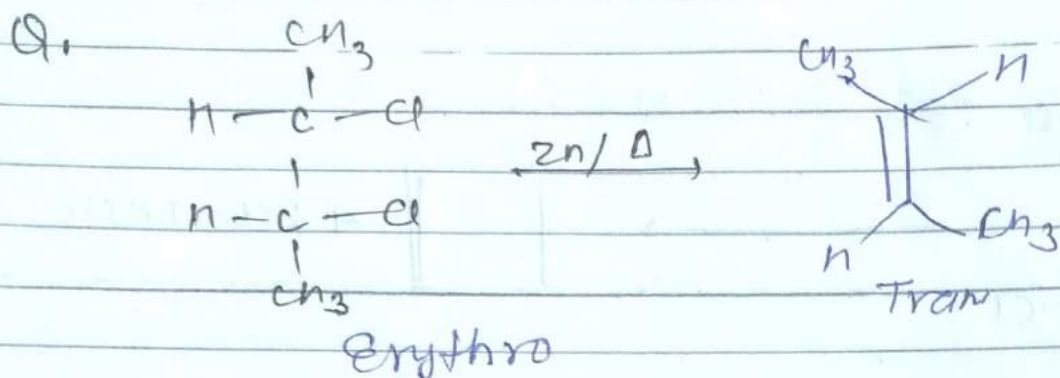 Q.
CH3
H - C - Cl
H - C - Cl
CH3
Erythro
Zn/ Δ
CH3 H
H CH3
Tran